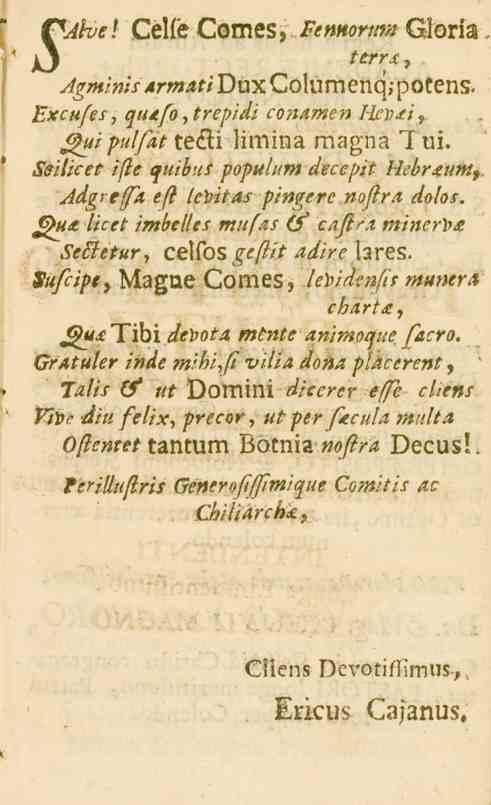 SAlve! Celse Comes, Fennorum Gloria
terræ,
Agminis armati Dux Columenq; potens.
Excuses, quæso, trepidi conamen Hevæi,
Qui pulsat tecti limina magna Tui.
Scilicet iste quibus populum decepit Hebræum,
Adgressa est levitas pingere nostra dolos.
Quæ licet imbelles musas & castra minervæ
Sectetur, celsos gestit adire lares.
Suscipe, Magne Comes, levidensis munera
chartæ,
Quæ Tibi devota mente animoque sacro.
Gratuler inde mihi, si vilia dona placerent,
Talis & ut Domini dicerer esse cliens
Vive diu felix, precor, ut per sæcula multa
Ostentet tantum Botnia nostra Decus!
Perillustris Generosissimique Comitis ac
Chiliarchæ,
Cliens Devotissimus,
Ericus Cajanus.